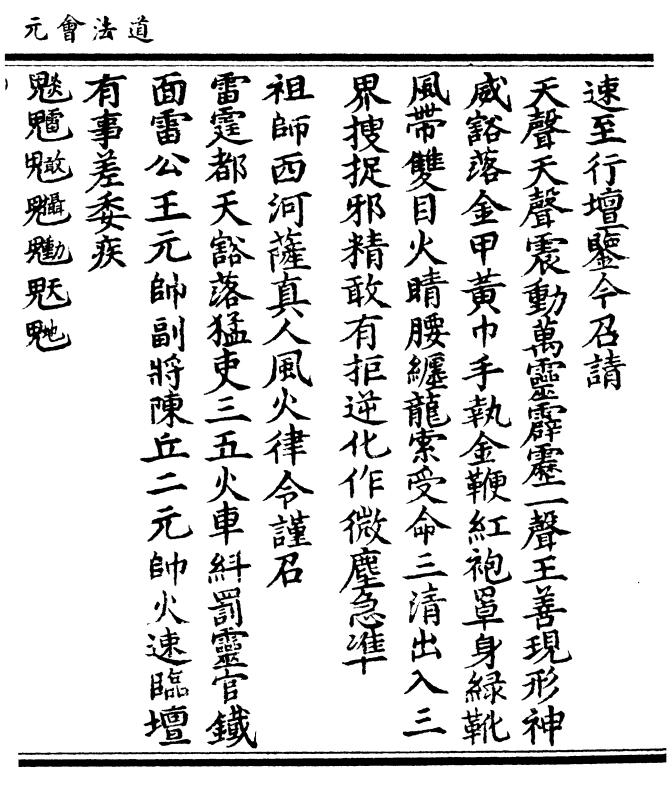 道法會元
速至行壇鑒今召請
天聲天聲震動萬靈霹靂一聲王善現形神
威豁落金甲黃巾手執金鞭紅袍罩身綠靴
風帶雙目火睛腰纏龍索受命三清出入三
界搜捉邪精敢有拒逆化作微塵急準
祖師西河薩真人風火律令謹召
雷霆都天豁落猛吏三五火車糾罰靈官鐵
面雷公王元帥副將陳丘二元帥火速臨壇
有事差委疾